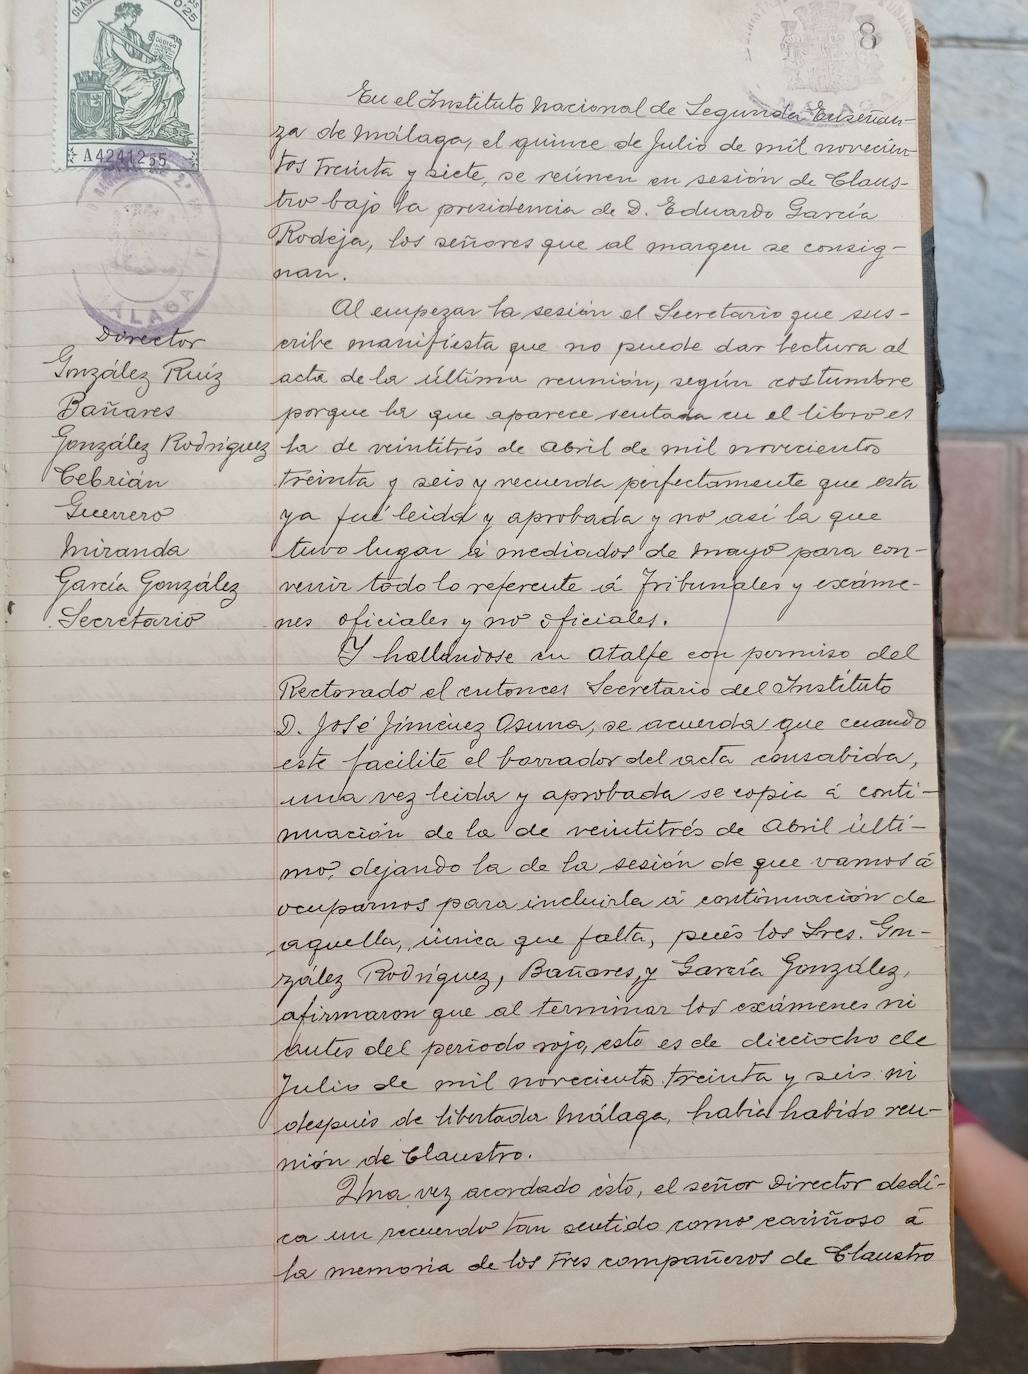 0'25
A4241255
8
MÁLAGA
Director
González Ruiz
Bañares
González Rodríguez
Cebrián
Guerrero
Miranda
García González
Secretario
En el Instituto Nacional de Segunda Enseñan-
za de Málaga, el quince de Julio de mil novecien-
tos treinta y siete, se reúnen en sesión de Claus-
tro bajo la presidencia de D. Eduardo García
Rodeja, los señores que al margen se consig-
nan.
Al empezar la sesión el Secretario que sus-
cribe manifiesta que no puede dar lectura al
acta de la última reunión, según costumbre
porque la que aparece sentada en el libro es
la de veintitrés de Abril de mil novecientos
treinta y seis y recuerda perfectamente que esta
ya fué leida y aprobada y no así la que
tuvo lugar á mediados de Mayo para con-
venir todo lo referente á Tribunales y exáme-
nes oficiales y no oficiales.
Y hallándose en Atalfe con permiso del
Rectorado el entonces Secretario del Instituto
D. José Jiménez Osuna, se acuerda que cuando
este facilite el borrador del acta consabida,
una vez leida y aprobada se copia á conti-
nuación de la de veintitrés de Abril últi-
mo, dejando la de la sesión de que vamos á
ocuparnos para incluirla á continuación de
aquella, única que falta, pués los Sres. Gon-
zález Rodríguez, Bañares, y García González,
afirmaron que al terminar los exámenes ni
antes del periodo rojo, esto es de dieciocho de
Julio de mil novecientos treinta y seis ni
después de libertada Málaga, había habido reu-
nión de Claustro.
Una vez acordado ésto, el señor Director dedi-
ca un recuerdo tan sentido como cariñoso á
la memoria de los tres compañeros de Claustro